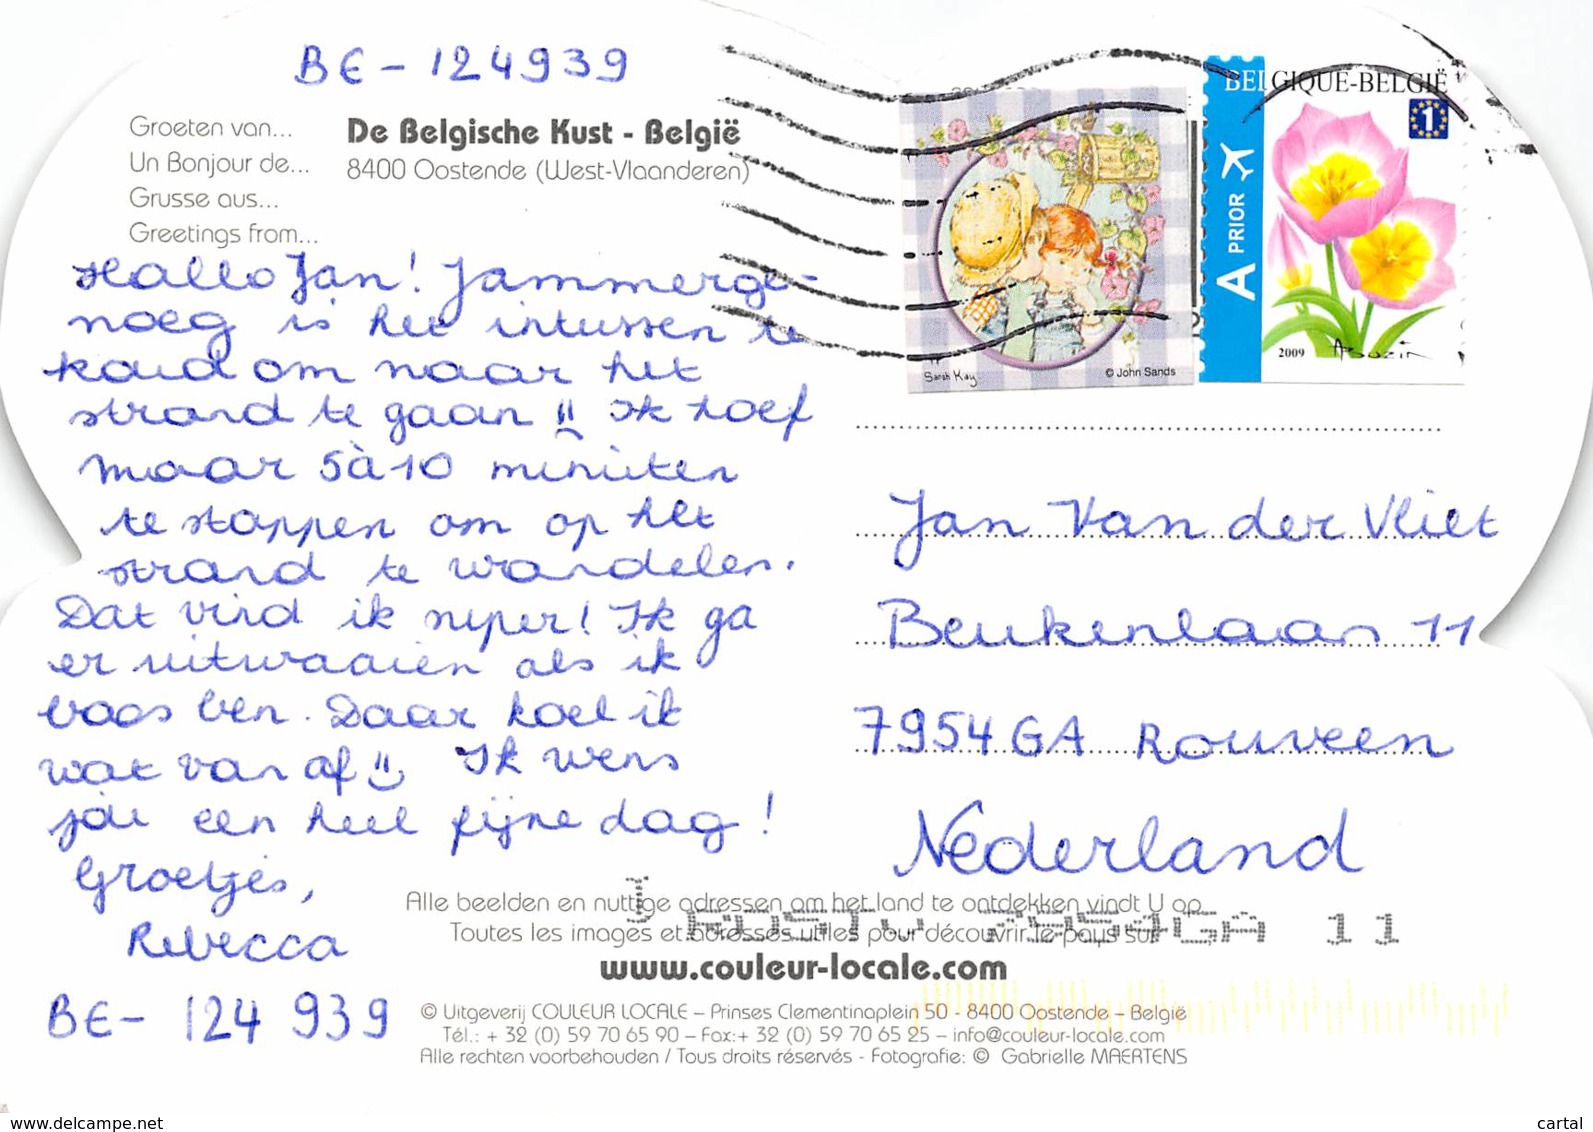 BE - 124939
Groeten van...
Un Bonjour de...
Grusse aus...
Greetings from...
De Belgische Kust - België
8400 Oostende (West-Vlaanderen)
Hallo Jan! Jammerge-
noeg is het intussen te
koud om naar het
strand te gaan Ik hoef
maar 5 à 10 minuten
te stappen om op het
strand te wandelen.
Dat vind ik super! Ik ga
er uitwaaien als ik
boos ben. Daar koel ik
wat van af Ik wens
jou een heel fijne dag!
Groetjes,
Rebecca
BE - 124 939
Sarah Kay
© John Sands
BELGIQUE-BELGIË
1
A PRIOR
2009
Jan Van der Vliet
Beukenlaan 11
7954 GA Rouveen
Nederland
Alle beelden en nuttige adressen om het land te ontdekken vindt U op
Toutes les images et adresses utiles pour découvrir le pays sur
7954GA 11
www.couleur-locale.com
© Uitgeverij COULEUR LOCALE – Prinses Clementinaplein 50 - 8400 Oostende – België
Tél.: + 32 (0) 59 70 65 90 – Fax:+ 32 (0) 59 70 65 25 – info@couleur-locale.com
Alle rechten voorbehouden / Tous droits réservés - Fotografie: © Gabrielle MAERTENS
www.delcampe.net
cartal